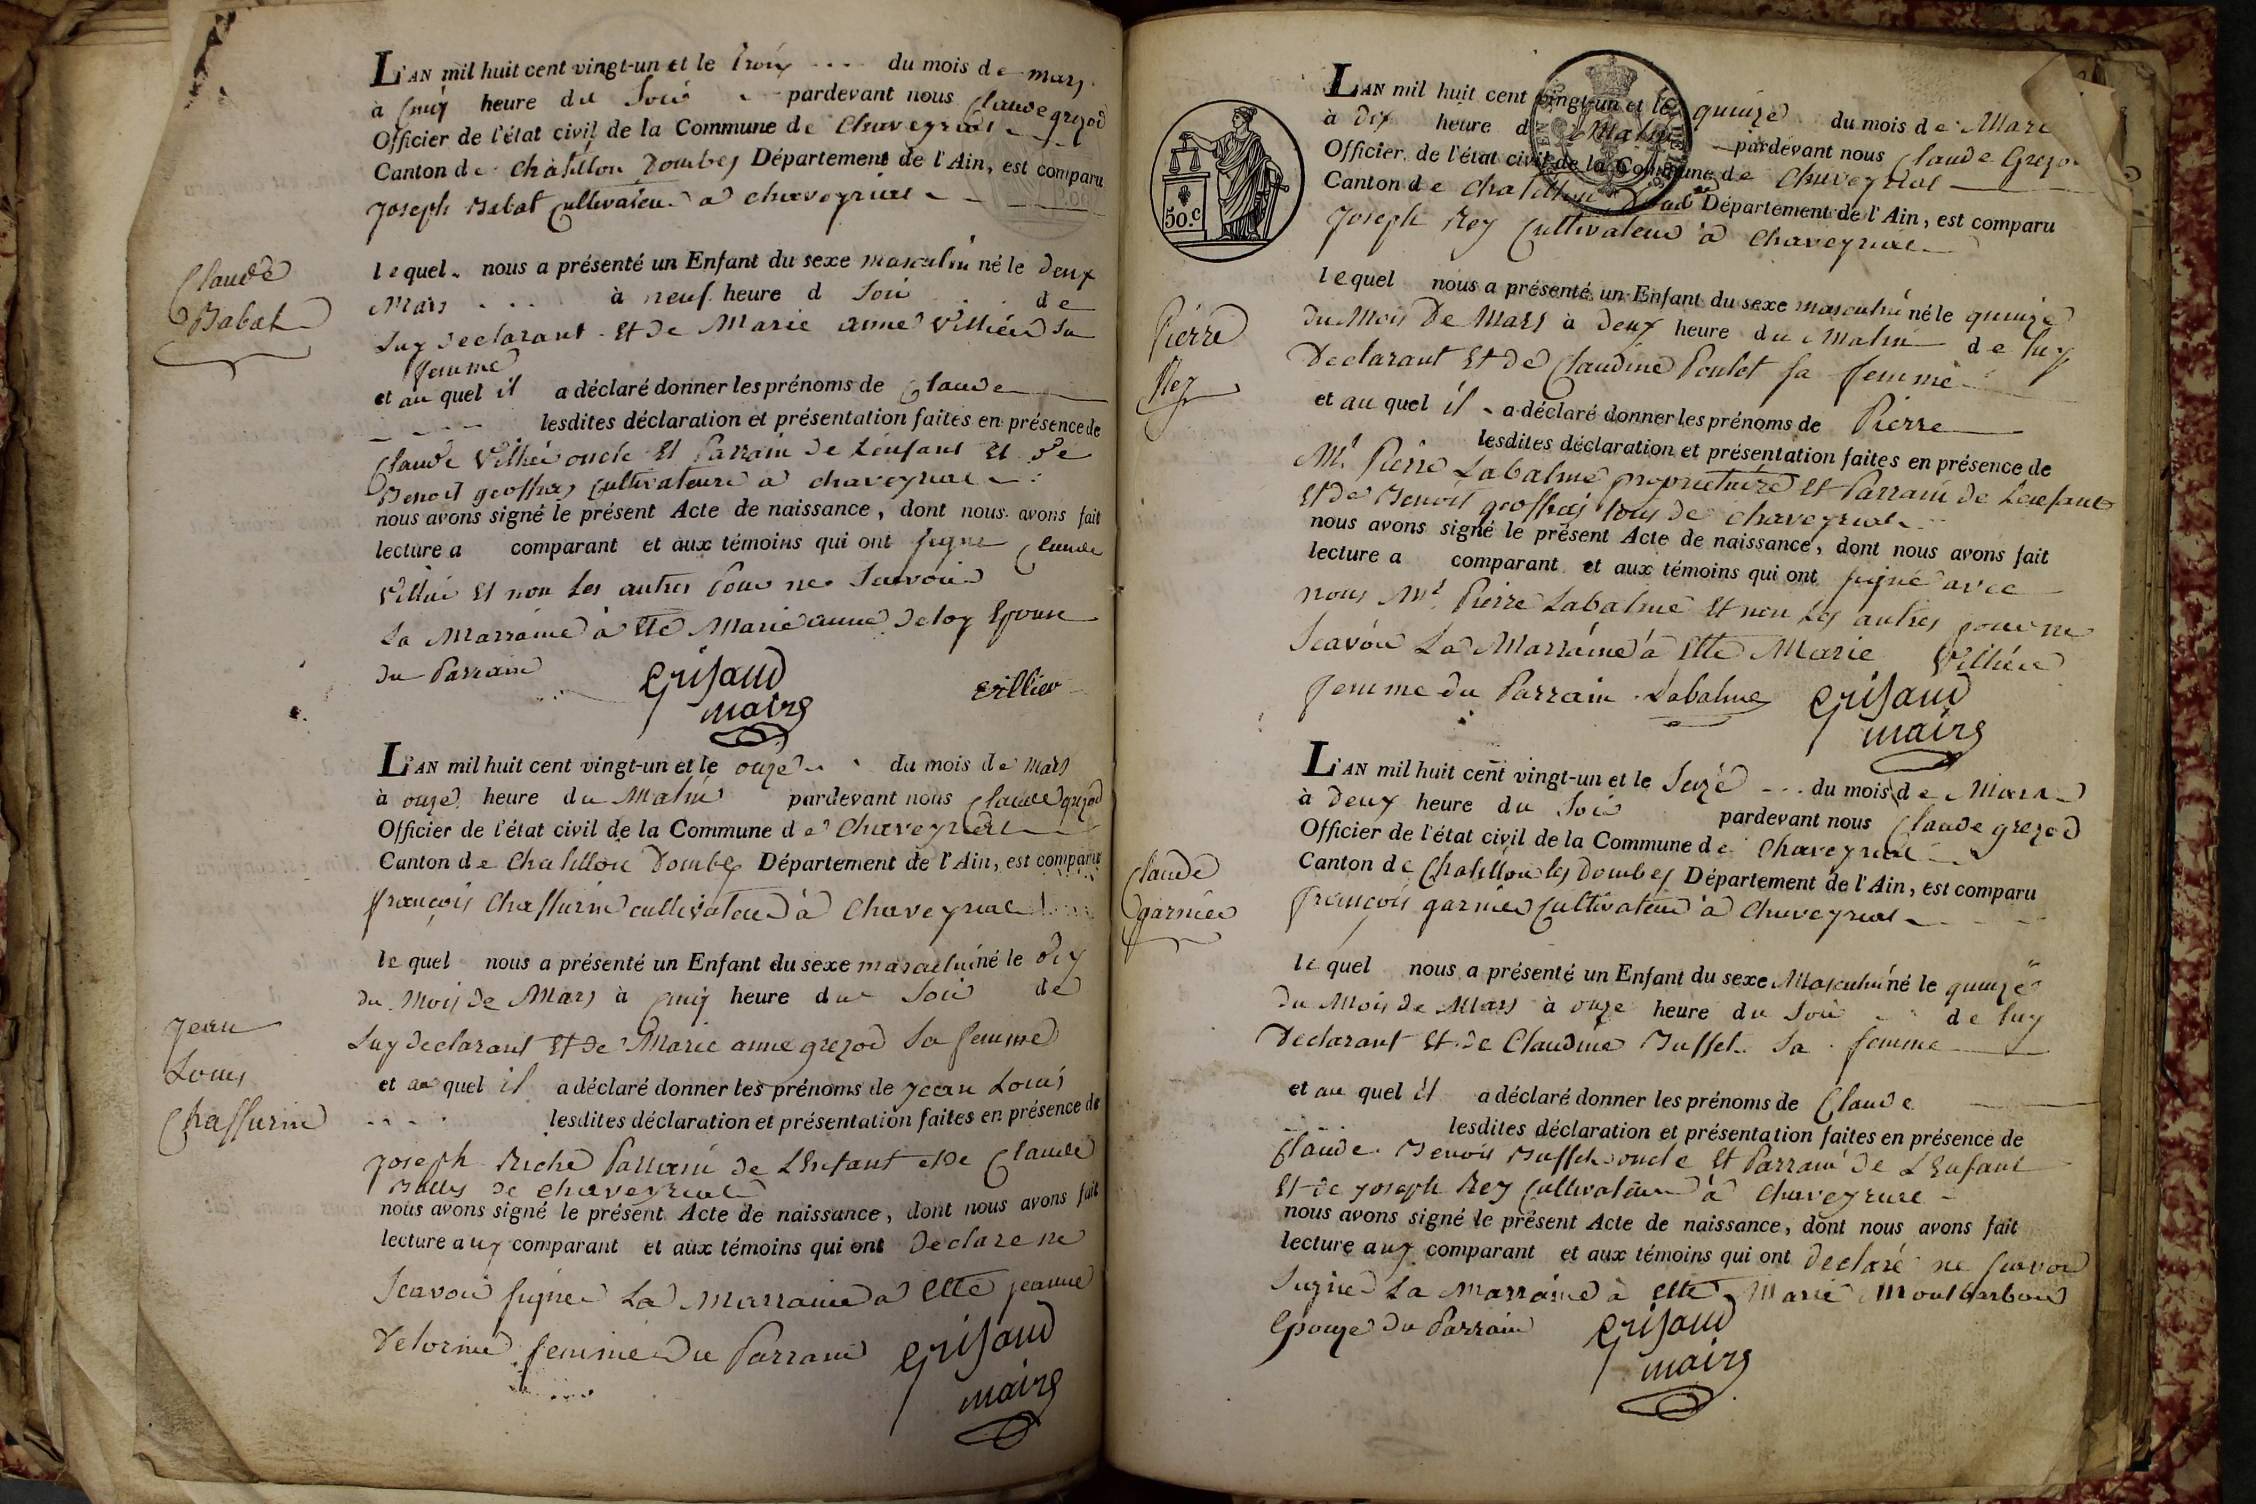 L'AN mil huit cent vingt-un et le trois du mois de mars
à cinq heure du Soir pardevant nous Claude grezod
Officier de l'état civil de la Commune de Chaveyriat
Canton de Chatillon Dombes Département de l'Ain, est comparu
Joseph Babat Cultivateur à chaveyriat
Claude
Babat
lequel nous a présenté un Enfant du sexe masculin né le deux
Mars à neuf heure d Soir de
Luy declarant Et de Marie anne Villier Sa
femme
et au quel il a déclaré donner les prénoms de Claude
lesdites déclaration et présentation faites en présence de
Claude Villier oncle Et Parrain de L'enfant Et de
Benoit geoffray Cultivateurs à chaveyriat
nous avons signé le présent Acte de naissance, dont nous avons fait
lecture a comparant et aux témoins qui ont signé Claude
Villier Et non Les autres Pour ne Scavoir
La Marraine à Etté Marie anne Deloy Epouse
du Parrain
Grisaud villier
maire
L'AN mil huit cent vingt-un et le onze du mois de mars
à onze heure du Matin pardevant nous Claude grezod
Officier de l'état civil de la Commune de Chaveyriat
Canton de Chatillon Dombes Département de l'Ain, est comparu
françois Chassurin cultivateur à Chaveyriat
le quel nous a présenté un Enfant du sexe masculin né le dix
du Mois de Mars à cinq heure du Soir de
Jean
Louis
Chassurin
Luy declarant Et de Marie anne grezod Sa femme
et au quel il a déclaré donner les prénoms de jean Louis
lesdites déclaration et présentation faites en présence de
Joseph Riche Parrain de L'Enfant et de Claude
de chaveyriat
nous avons signé le présent Acte de naissance, dont nous avons fait
lecture aux comparant et aux témoins qui ont declare ne
Scavoir signer La Marraine a Etté jeanne
Delorme femme du Parrain
Grisaud
maire
50.c
L'AN mil huit cent vingt-un et le quinze du mois de Mars
à dix heure du Matin pardevant nous Claude Grezod
Officier de l'état civil de la Commune de Chaveyriat
Canton de Chatillon Département de l'Ain, est comparu
Joseph Rey Cultivateur à Chaveyriat
Pierre
Rey
lequel nous a présenté un Enfant du sexe masculin né le quinze
du Mois De Mars à deux heure du Matin de luy
Declarant Et de Claudine Poulet sa femme
et au quel il a déclaré donner les prénoms de Pierre
lesdites déclaration et présentation faites en présence de
Mr. Pierre Labalme propriétaire Et Parrain de L'enfant
Et de Benoit geoffray tous de chaveyriat
nous avons signé le présent Acte de naissance, dont nous avons fait
lecture a comparant et aux témoins qui ont signé avec
nous Mr. Pierre Labalme Et non Les autres pour ne
Scavoir La Marraine à Etté Marie Villier
femme du Parrain Labalme Grisaud
maire
L'AN mil huit cent vingt-un et le Seize du mois de Mars
à Deux heure du Soir pardevant nous Claude grezod
Officier de l'état civil de la Commune de Chaveyriat
Canton de Chatillon les Dombes Département de l'Ain, est comparu
françois garnier Cultivateur à Chaveyriat
Claude
garnier
lequel nous a présenté un Enfant du sexe Masculin né le quinze
du Mois de Mars à onze heure du Soir de luy
Declarant Et de Claudine Buffet Sa femme
et au quel il a déclaré donner les prénoms de Claude
lesdites déclaration et présentation faites en présence de
Claude Benoit Buffet oncle Et Parrain de L'Enfant
Et de Joseph Rey Cultivateur à Chaveyriat
nous avons signé le présent Acte de naissance, dont nous avons fait
lecture aux comparant et aux témoins qui ont declaré ne scavoir
Signer La Marraine à Etté Marie Montbarbon
Epouze du Parrain Grisaud
maire